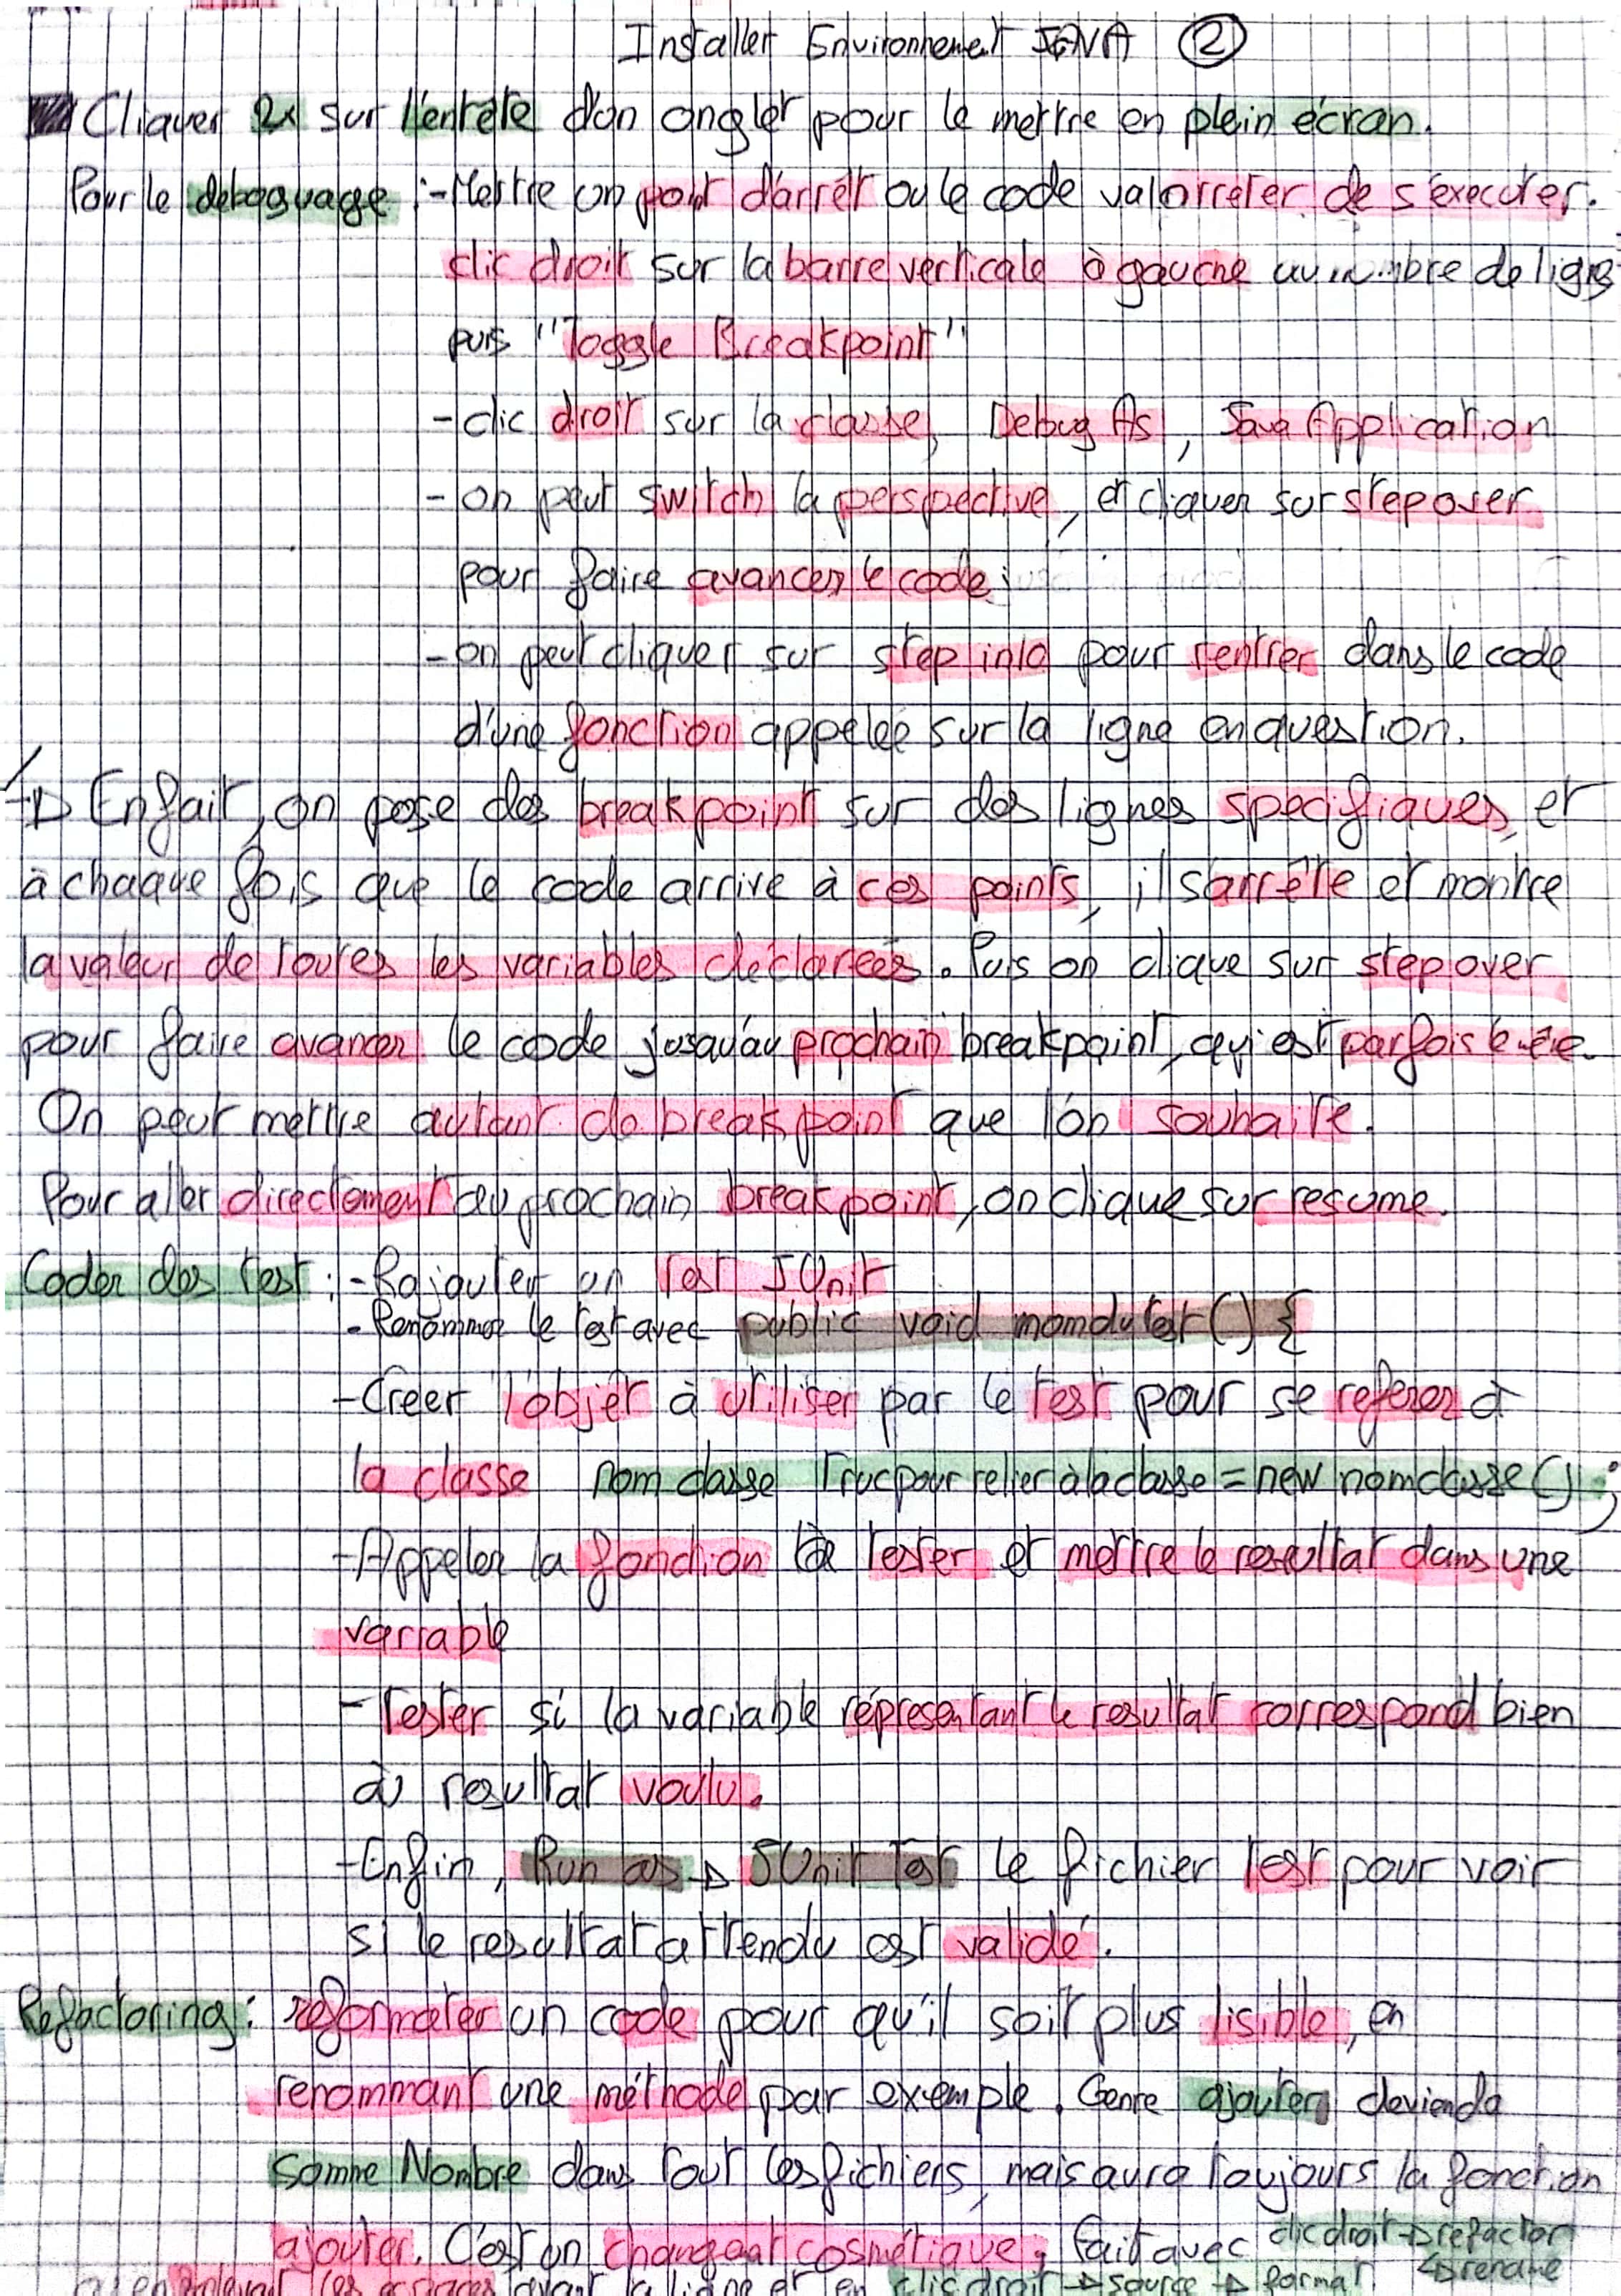 Installer Environnement JAVA ②
Cliquer 2x sur l'entête d'un onglet pour le mettre en plein écran.
Pour le deboguage :- Mettre un point d'arrêt ou le code va arreter de s'executer.
clic droit sur la barre verticale à gauche au nombre de ligne
puis "Toggle Breakpoint"
- clic droit sur la classe, Debug As, Java Application
- on peut switch la perspective, et cliquer sur step over
pour faire avancer le code
- on peut cliquer sur step into pour rentrer dans le code
d'une fonction appelée sur la ligne en question.
→ En fait, on pose des breakpoint sur des lignes specifiques, et
à chaque fois que le code arrive à ces points, il s'arrête et montre
la valeur de toutes les variables déclarées. Puis on clique sur step over
pour faire avancer le code jusqu'au prochain breakpoint, qui est parfois le
On peut mettre autant de breakpoint que l'on souhaite.
Pour aller directement au prochain breakpoint, on clique sur resume.
Coder des test : - Rajouter un Test JUnit
- Renommer le test avec public void nomdutest() {
- Creer l'objet à utiliser par le test pour se referer à
la classe nom classe Trucpourrelieràlaclasse = new nomclasse();
- Appeler la fonction à tester et mettre le resultat dans une
variable
- Tester si la variable répresentant le resultat correspond bien
au resultat voulu.
- Enfin, Run as → JUnit Test le fichier test pour voir
si le resultat attendu est validé.
Refactoring : reformater un code pour qu'il soit plus lisible, en
renommant une méthode par exemple. Genre ajouter deviendo
Somme Nombre dans tout les fichiers, mais aura toujours la fonction
ajouter. C'est un changeant cosmétique, fait avec clic droit → refactor
↳ rename
en enlevant les espaces avant la ligne et en clic droit → source → format